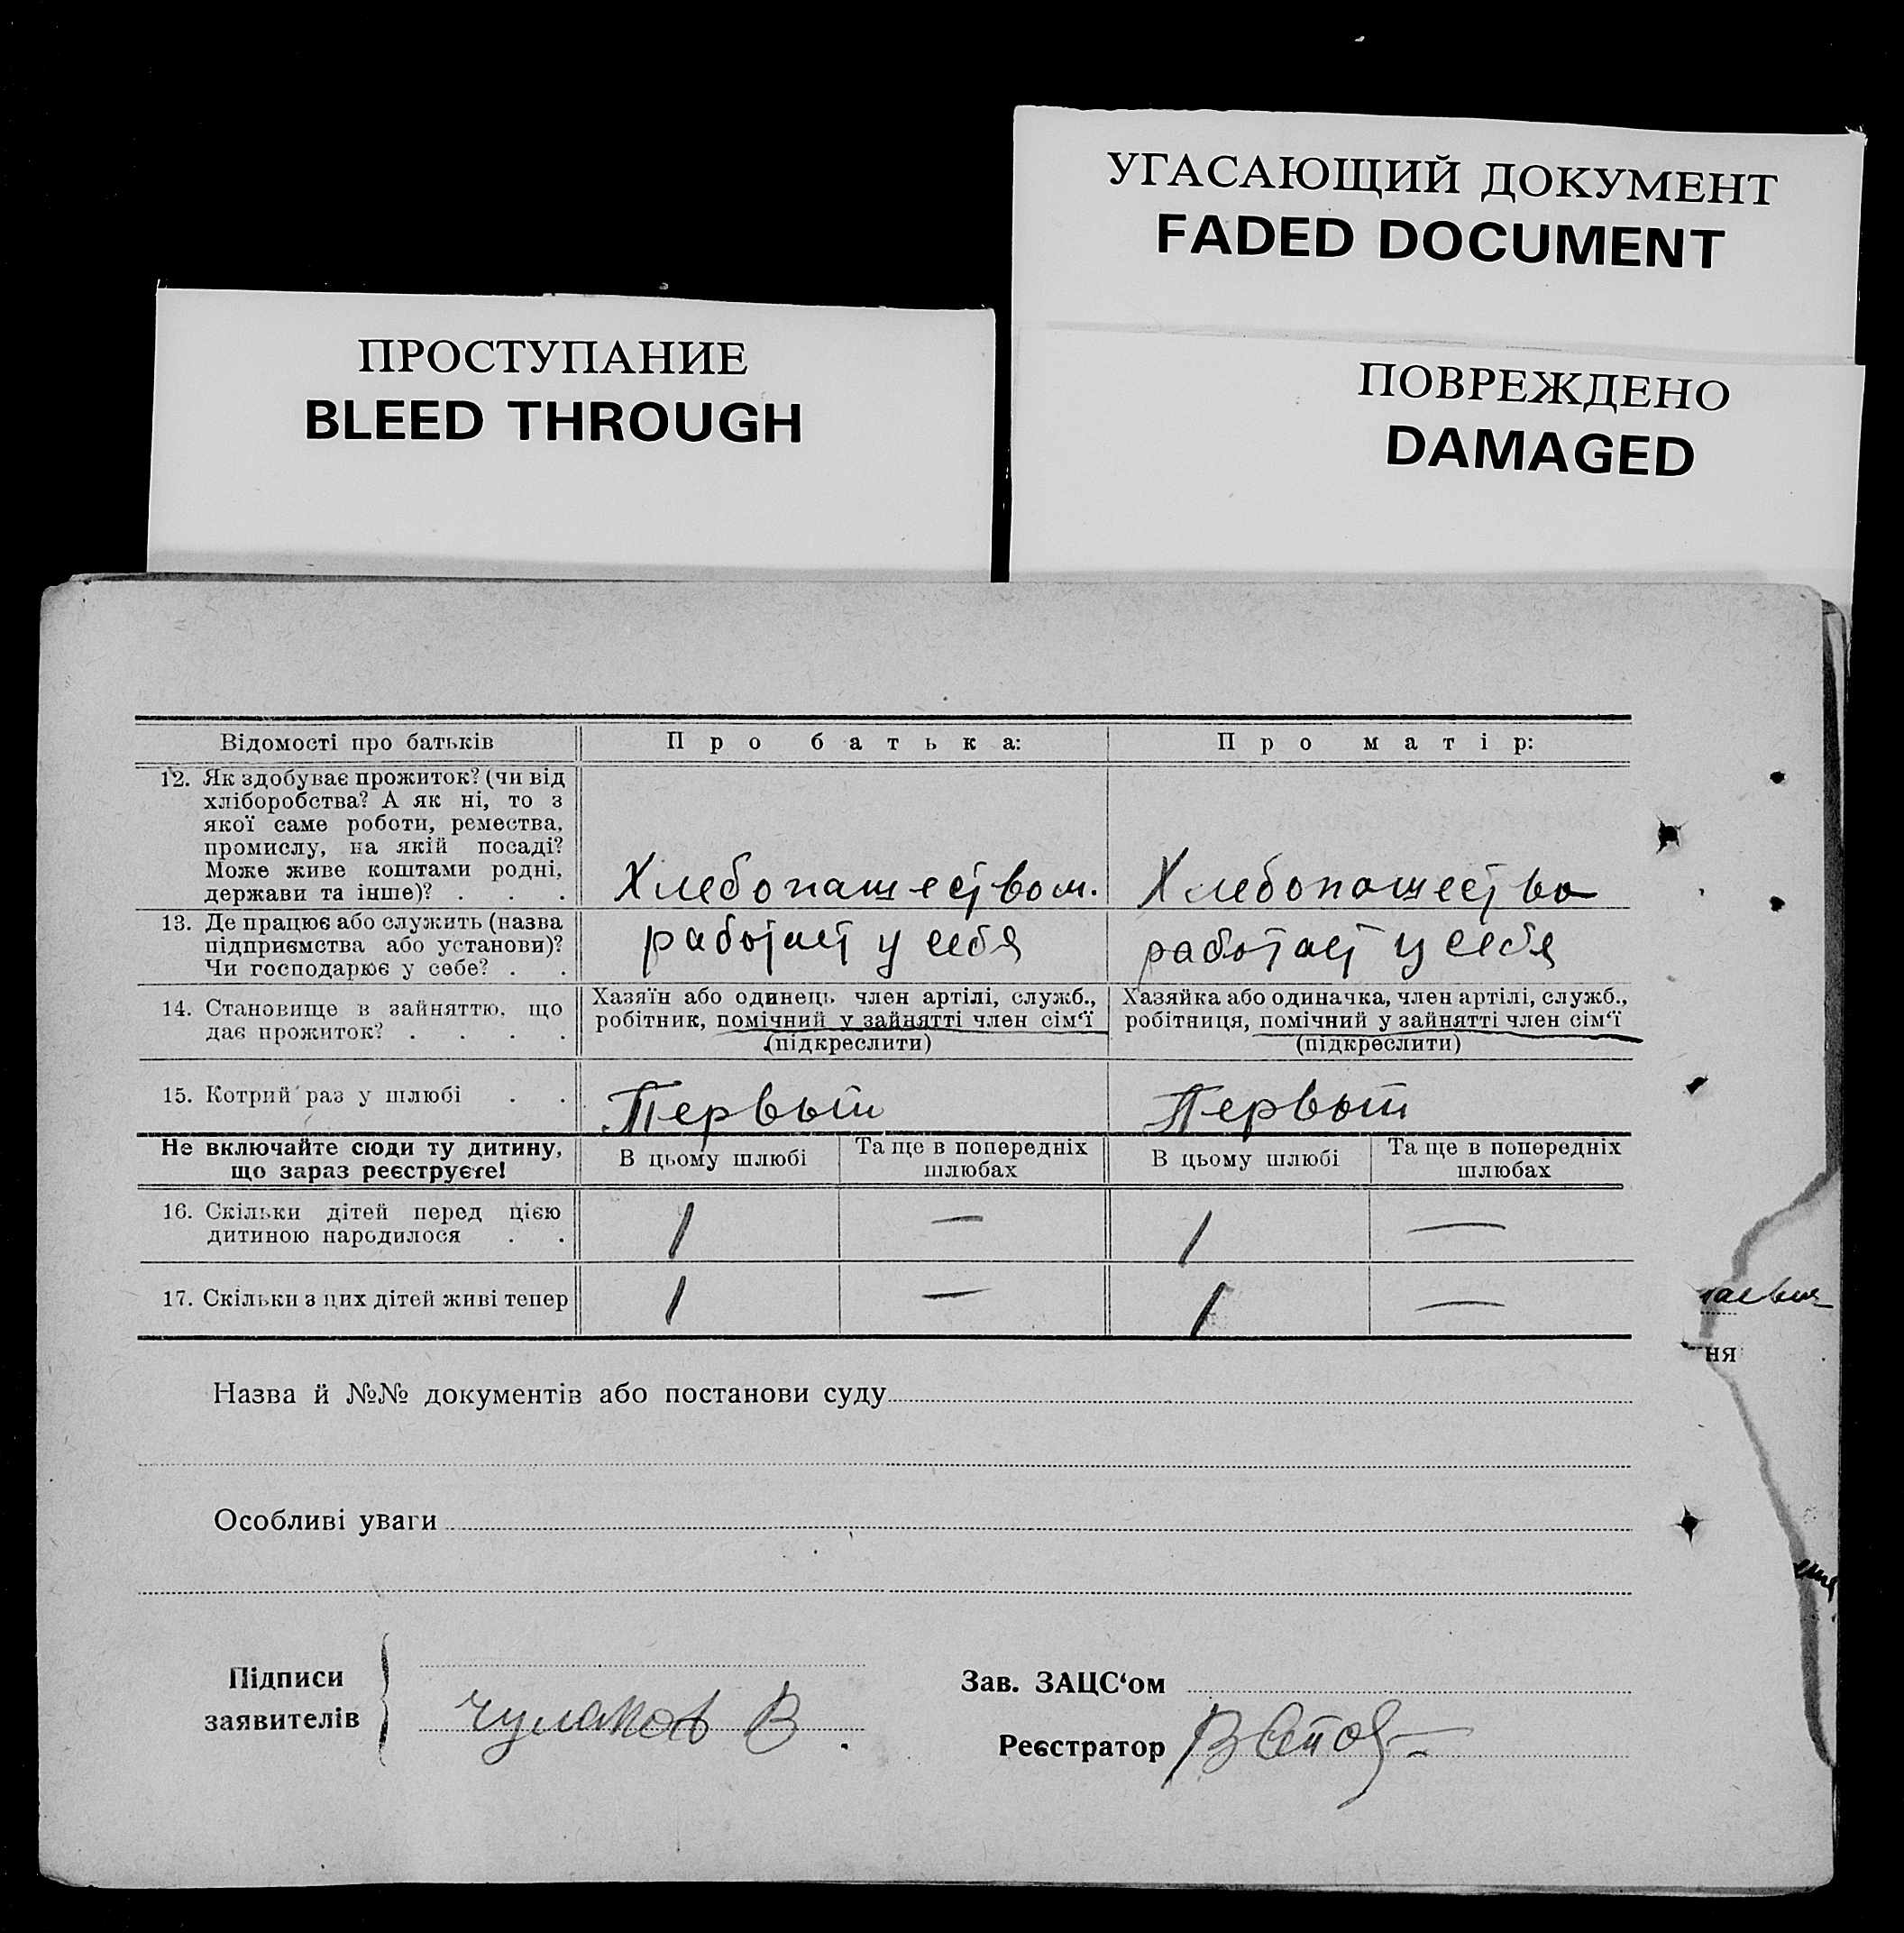 УГАСАЮЩИЙ ДОКУМЕНТ
FADED DOCUMENT
ПРОСТУПАНИЕ
BLEED THROUGH
ПОВРЕЖДЕНО
DAMAGED
Відомості про батьків
Про батька:
Про матір:
12. Як здобуває прожиток? (чи від
хліборобства? А як ні, то з
якої саме роботи, ремества,
промислу, на якій посаді?
Може живе коштами родні,
держави та інше)? . . .
Хлебопашеством.
Хлебопашество
13. Де працює або служить (назва
підприємства або установи)?
Чи господарює у себе? . .
работает у себя
работает у себя
14. Становище в зайняттю, що
дає прожиток? . . . .
Хазяїн або одинець член артілі, служб.,
робітник, помічний у зайнятті член сім‘ї
(підкреслити)
Хазяйка або одиначка, член артілі, служб.,
робітниця, помічний у зайнятті член сім‘ї
(підкреслити)
15. Котрий раз у шлюбі . .
Первый
Первый
Не включайте сюди ту дитину,
що зараз реєструєте!
В цьому шлюбі
Та ще в попередніх
шлюбах
В цьому шлюбі
Та ще в попередніх
шлюбах
16. Скільки дітей перед цією
дитиною народилося . .
1 — 1 —
17. Скільки з цих дітей живі тепер
1 — 1 —
ня
Назва й №№ документів або постанови суду
Особливі уваги
Підписи
заявителів
Чулаков В.
Зав. ЗАЦС‘ом
Реєстратор